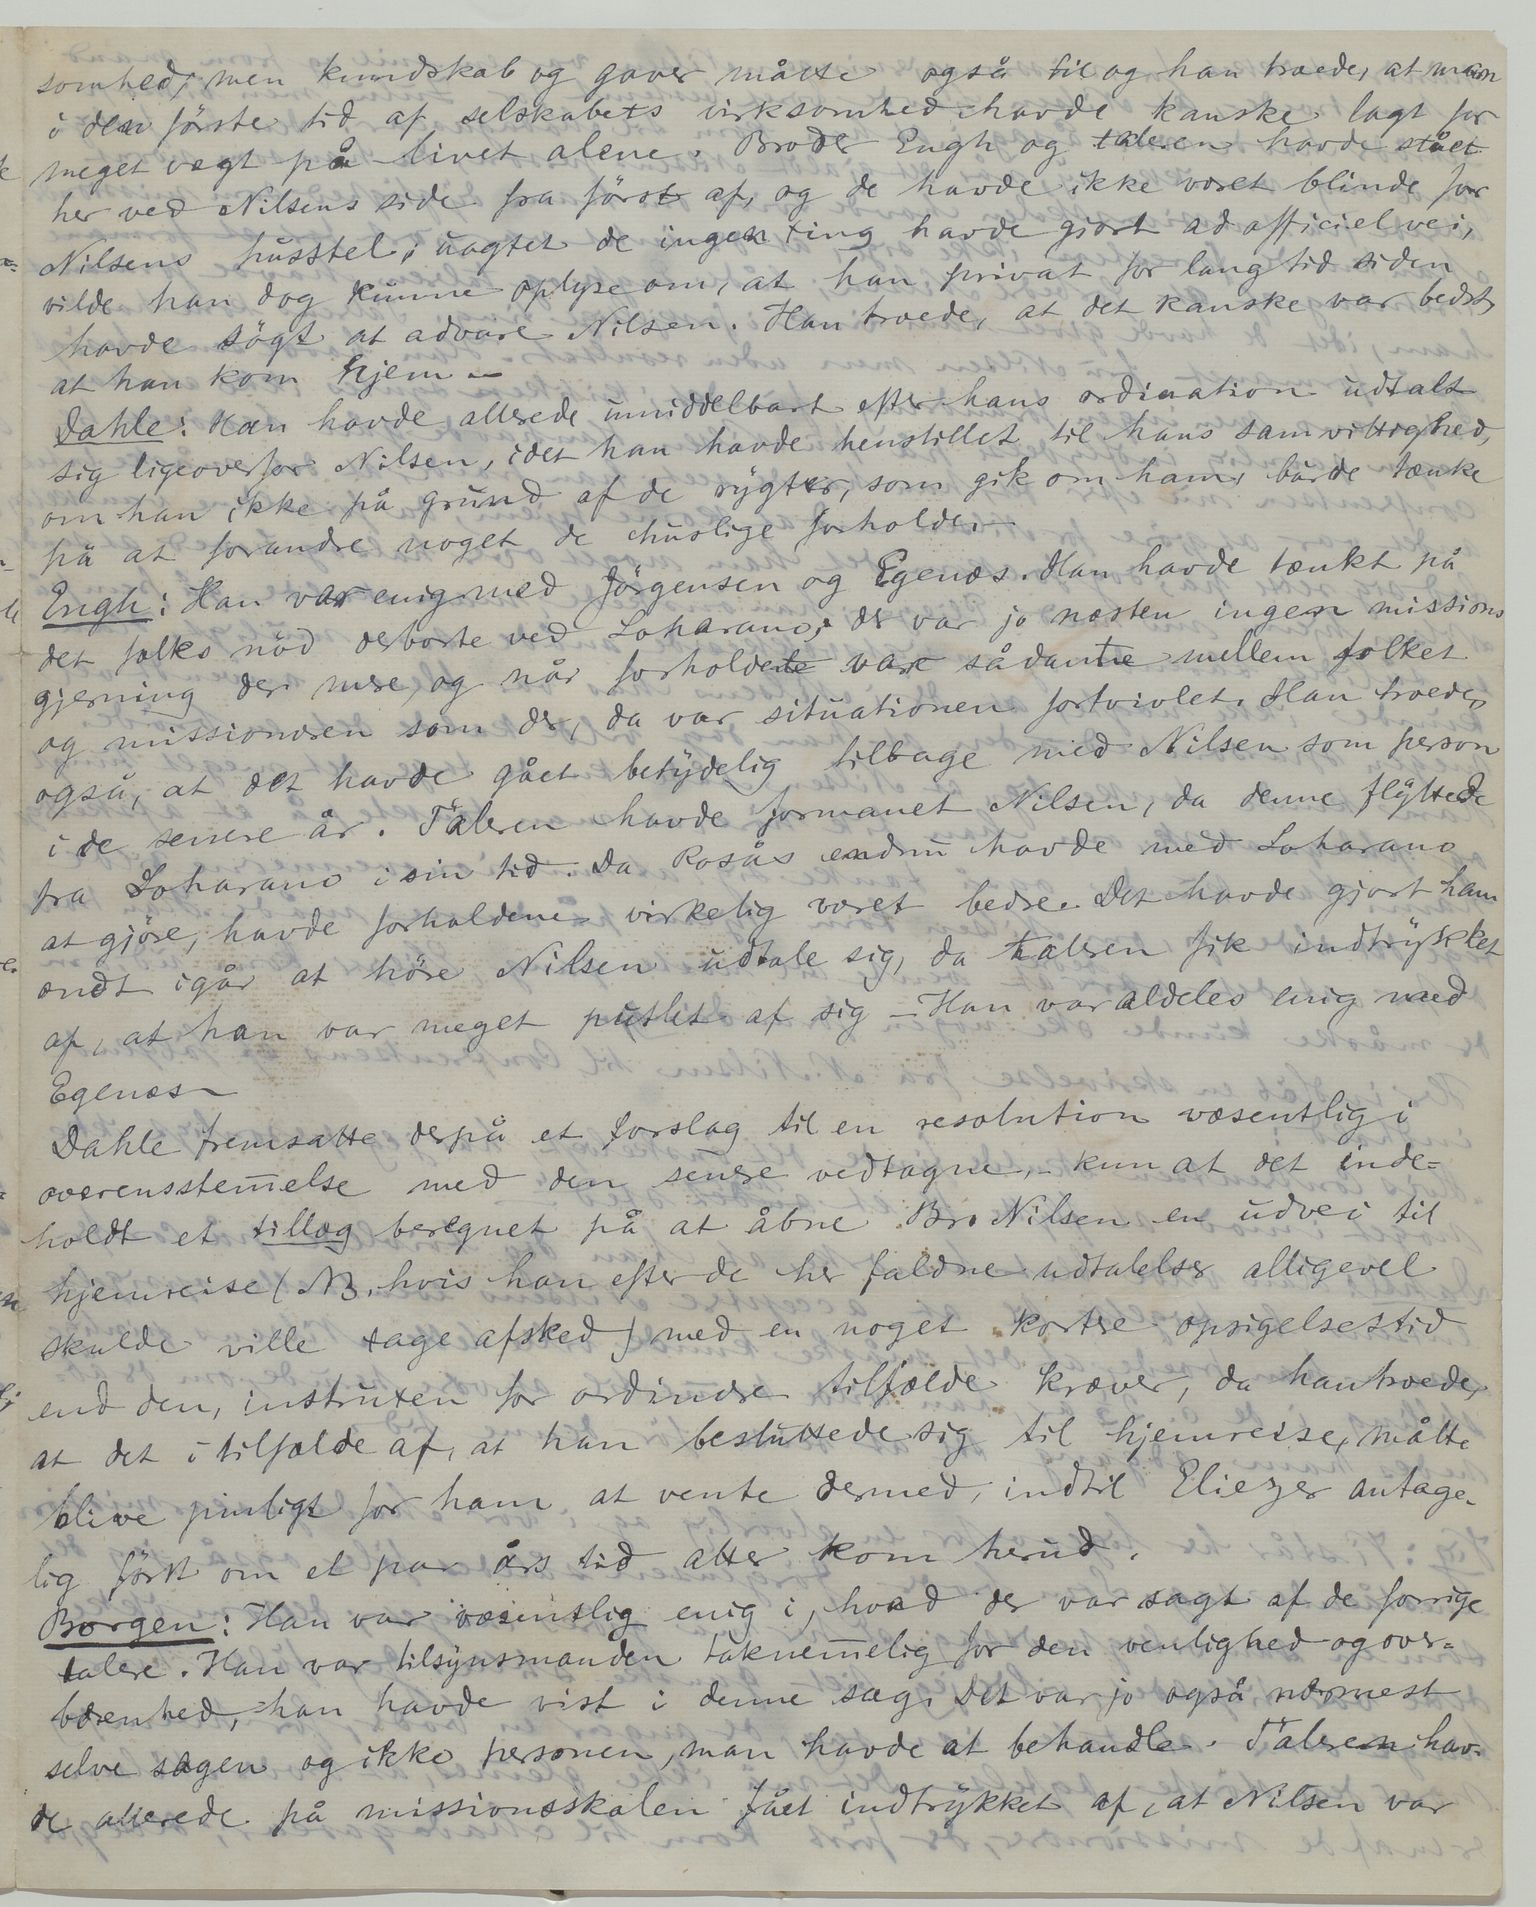 somhed, men kundskab og gaver måtte også til og han troede, at man
i den förste tid af selskabets virksomhed havde kanske lagt for
meget vægt på livet alene. Broder Engh og taleren havde stået
her ved Nilsens side fra först af, og de havde ikke været blinde for
Nilsens husstel; uagtet de ingen ting havde gjort ad officiel vei,
vilde han dog kunne oplyse om, at han privat for lang tid siden
havde sögt at advare Nilsen. Han troede, at det kanske var bedst,
at han kom hjem —
Dahle: Han havde allerede umiddelbart efter hans ordination udtalt
sig ligeoverfor Nilsen, idet han havde henstillet til hans samvittighed,
om han ikke på grund af de rygter, som gik om ham, burde tænke
på at forandre noget de huslige forholde. —
Engh: Han var enig med Jörgensen og Egenæs. Han havde tænkt på
det folks nöd derborte ved Loharano; der var jo næsten ingen missions
gjerning der mere, og når forholdene var sådanne mellem folket
og missionæren som der, da var situationen fortvivlet. Han troede,
også, at det havde gået betydelig tilbage med Nilsen som person
i de senere år. Taleren havde formanet Nilsen, da denne flyttede
fra Loharano i sin tid. Da Rosås endnu havde med Loharano
at gjöre, havde forholdene virkelig været bedre. Det havde gjort ham
ondt igår at höre Nilsen udtale sig, da taleren fik indtrykket
af, at han var meget putlet af sig — Han var aldeles enig med
Egenæs —
Dahle fremsatte derpå et forslag til en resolution væsentlig i
overensstem̄else med den senere vedtagne, – kun at det inde=
holdt et tillæg beregnet på at åbne Br. Nilsen en udvei til
hjemreise (NB. hvis han efter de her faldne udtalelser alligevel
skulde ville tage afsked) med en noget kortere opsigelsestid
end den, instruxen for ordinære tilfælde kræver, da han troede,
at det i tilfælde af, at han besluttede sig til hjemreise, måtte
blive pinligt for ham at vente dermed, indtil Eliezer antage-
lig först om et par års tid atter kom herud.
Borgen: Han var væsentlig enig i, hvad der var sagt af de forrige
talere. Han var tilsynsmanden taknem̄elig for den venlighed og over=
bærenhed, han havde vist i denne sag. Det var jo også nærmest
selve sagen og ikke personen, man havde at behandle. Taleren hav-
de allerede på missionsskolen fået indtrykket af, at Nilsen var